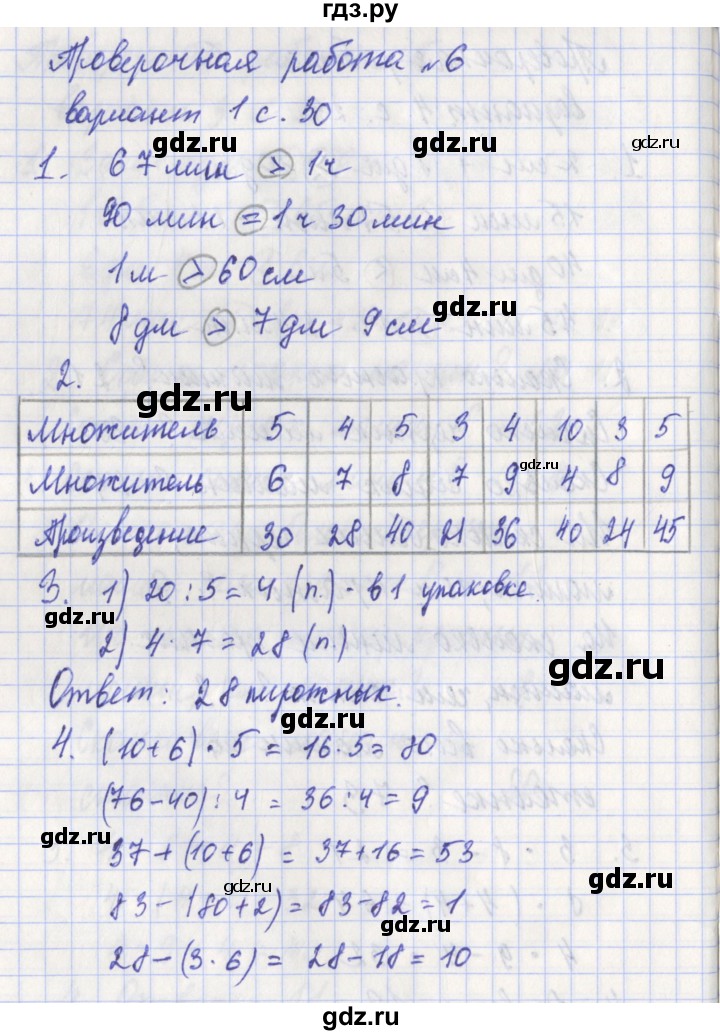 гдз.ру
Проверочная работа №6
вариант 1 с. 30
1. 67 мин > 1 ч
90 мин = 1 ч 30 мин
1 м > 60 см
8 дм > 7 дм 9 см
2.
Множитель 5 4 5 3 4 10 3 5
Множитель 6 7 8 7 9 4 8 9
Произведение 30 28 40 21 36 40 24 45
3. 1) 20 : 5 = 4 (п.) - в 1 упаковке.
2) 4 · 7 = 28 (п.)
Ответ: 28 пирожных.
4. (10+6) · 5 = 16 · 5 = 80
(76-40) : 4 = 36 : 4 = 9
37 + (10+6) = 37+16 = 53
83 - (80+2) = 83-82 = 1
28 - (3 · 6) = 28 - 18 = 10
gdz.ru
gdz.ru
gdz.ru
gdz.ru
gdz.ru
gdz.ru
gdz.ru
gdz.ru
gdz.ru
gdz.ru
gdz.ru
gdz.ru
gdz.ru
gdz.ru